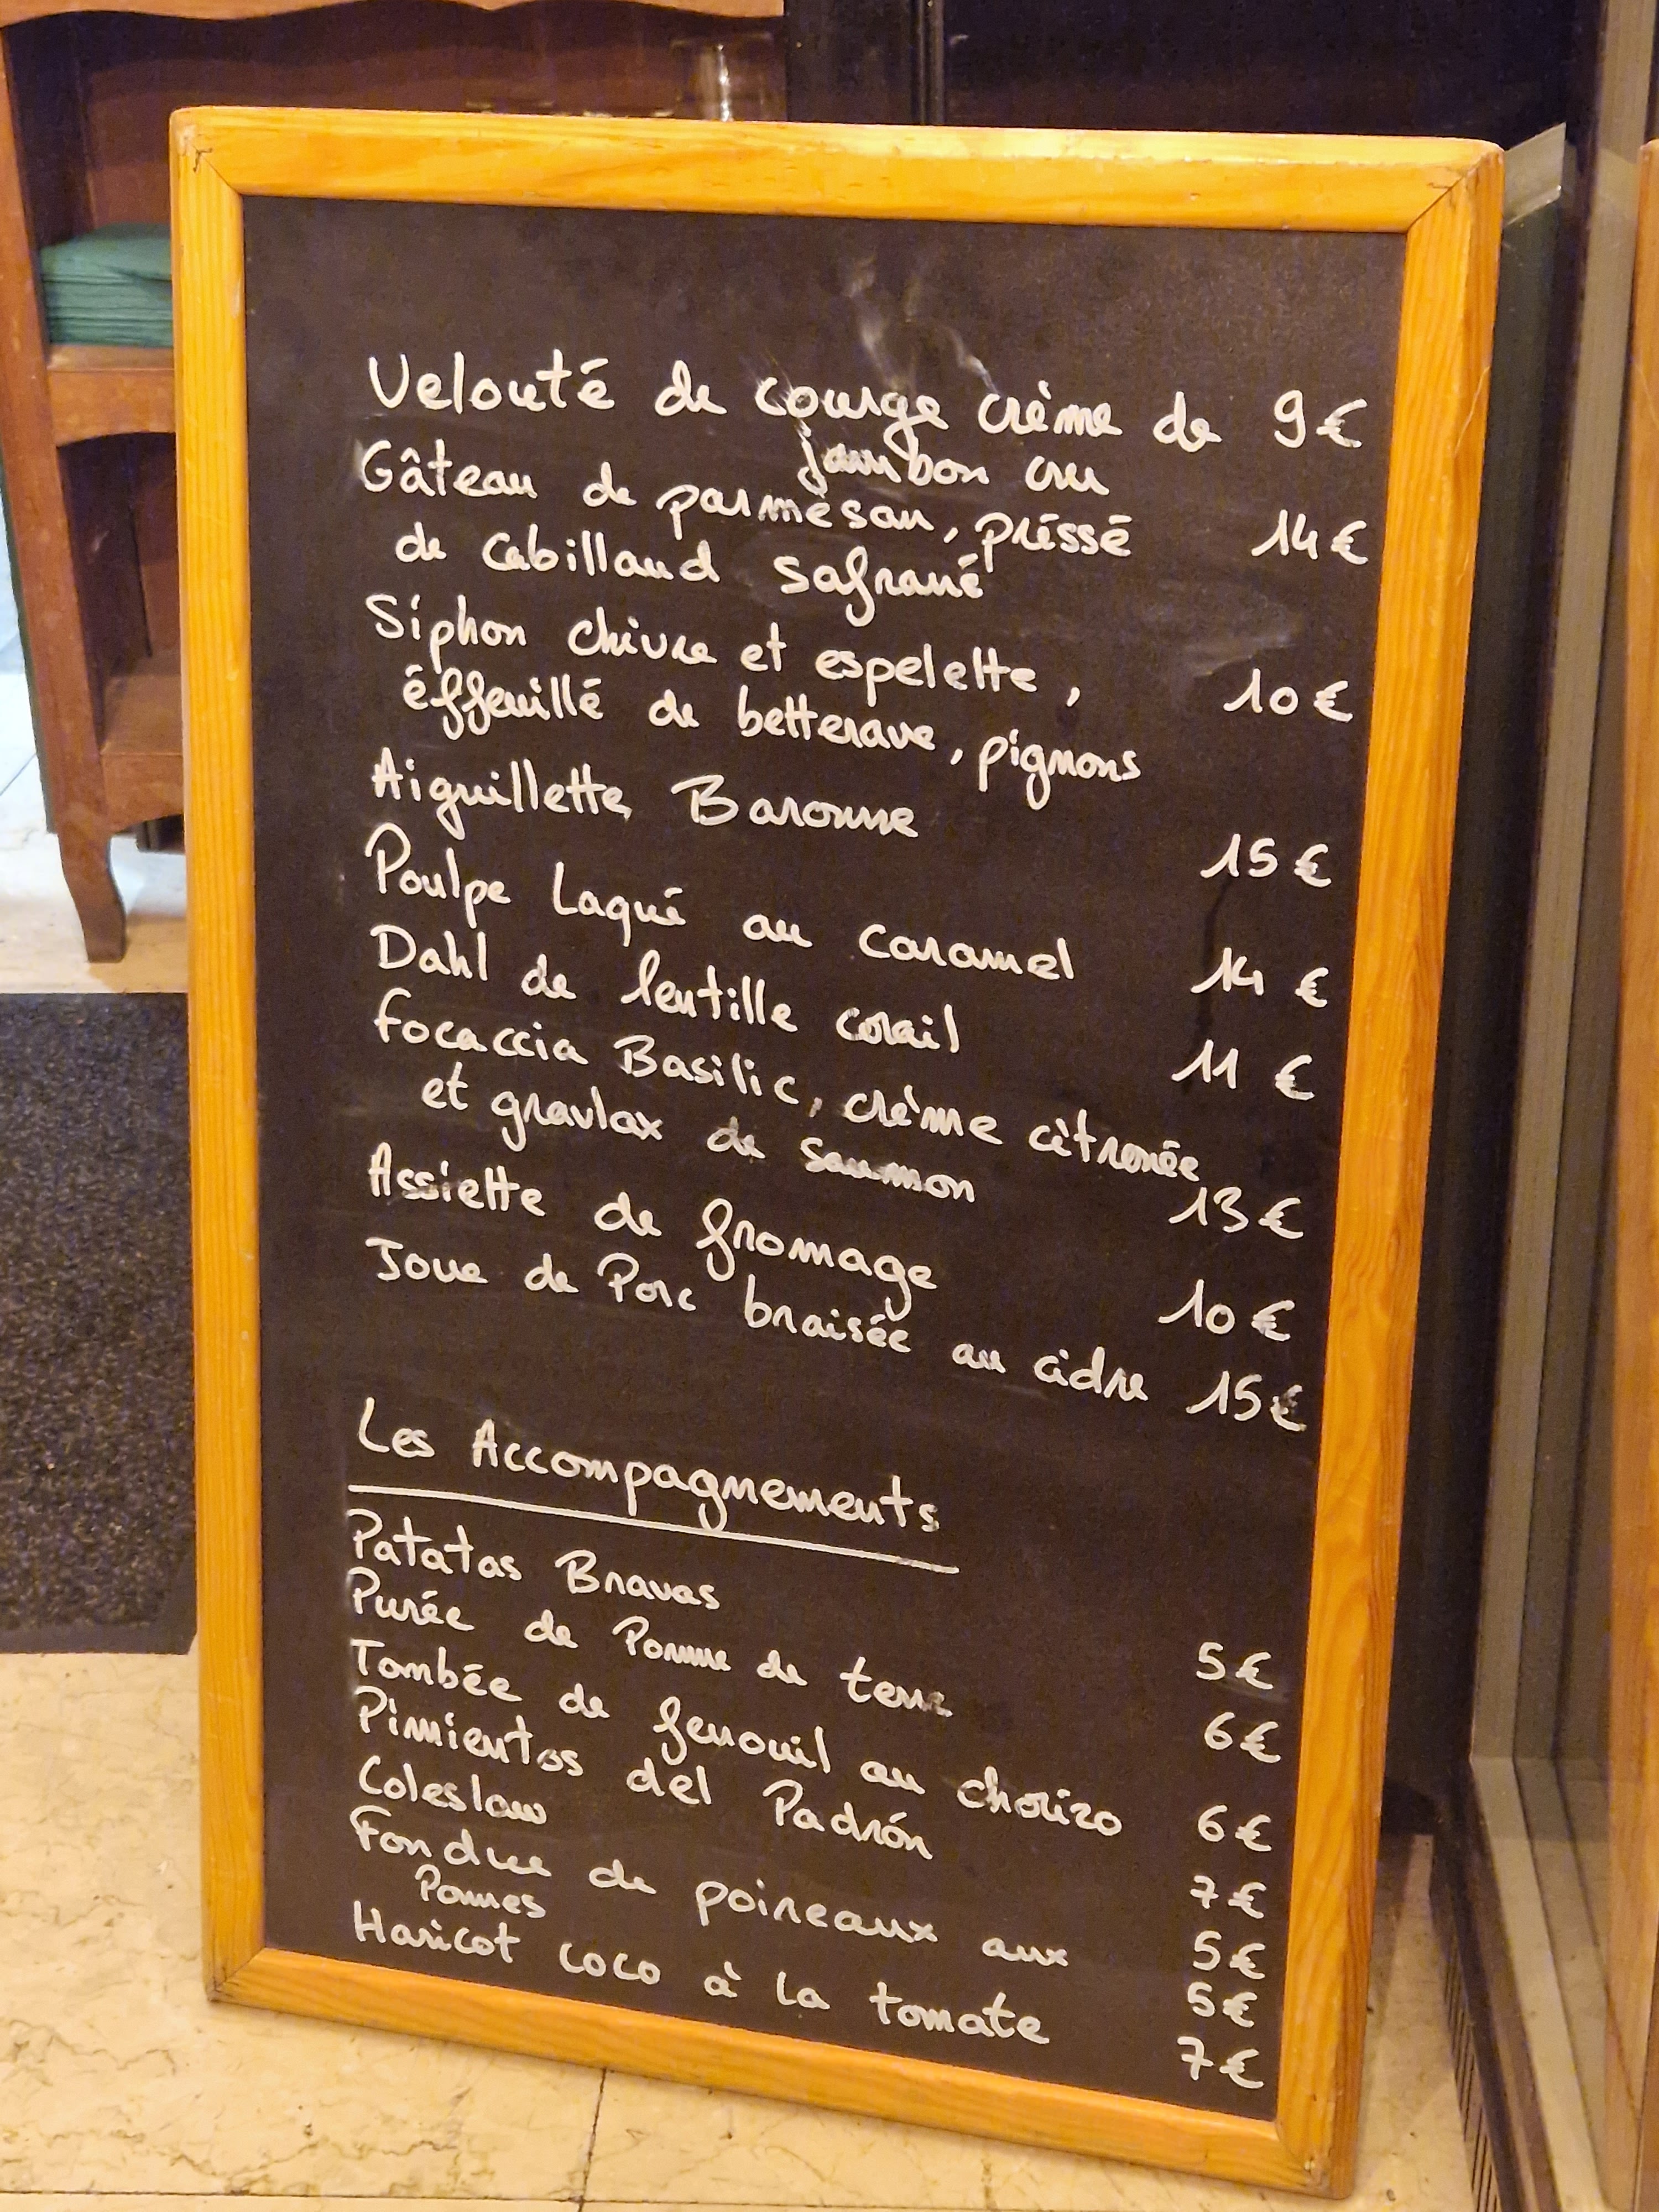 Velouté de courge crème de 9€
jambon cru
Gâteau de parmésan, préssé 14€
de Cabillaud safrané
Siphon chèvre et espelette, 10€
éffeuillé de betterave, pignons
Aiguillette Baronne 15€
Poulpe Laqué au caramel 14€
Dahl de lentille corail 11€
Focaccia Basilic, crème citronée
et gravlax de saumon 13€
Assiette de fromage 10€
Joue de Porc braisée au cidre 15€
Les Accompagnements
Patatas Bravas 5€
Purée de Pomme de terre 6€
Tombée de fenouil au chorizo 6€
Pimientos del Padrón 7€
Coleslaw 5€
Fondue de poireaux aux 5€
Pommes
Haricot coco à la tomate 7€